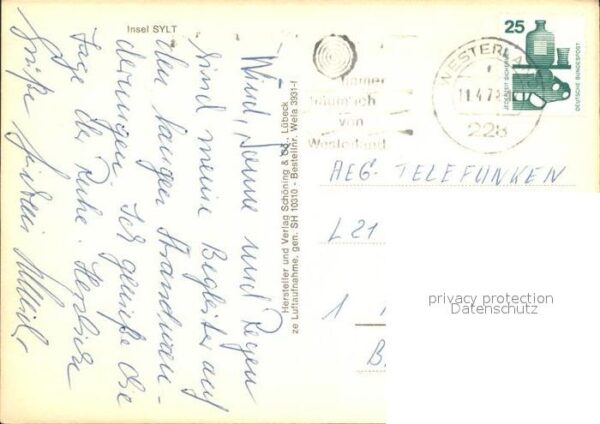 Insel SYLT
Wind, Sonne und Regen
sind meine Begleiter auf
den langen Strandwan-
derungen. Ich genieße die
Tage der Ruhe. Herzliche
Grüße
Hersteller und Verlag Schöning & Co., Lübeck
ze Luftaufnahme, gen. SH 10310 - Bestellnr. Wela 3931-f
immer
träum' ich
von
Westerland
WESTERLAND
11.4.7
228
25
JEDERZEIT SICHERHEIT
DEUTSCHE BUNDESPOST
AEG-TELEFUNKEN
L21
1
B
privacy protection
Datenschutz